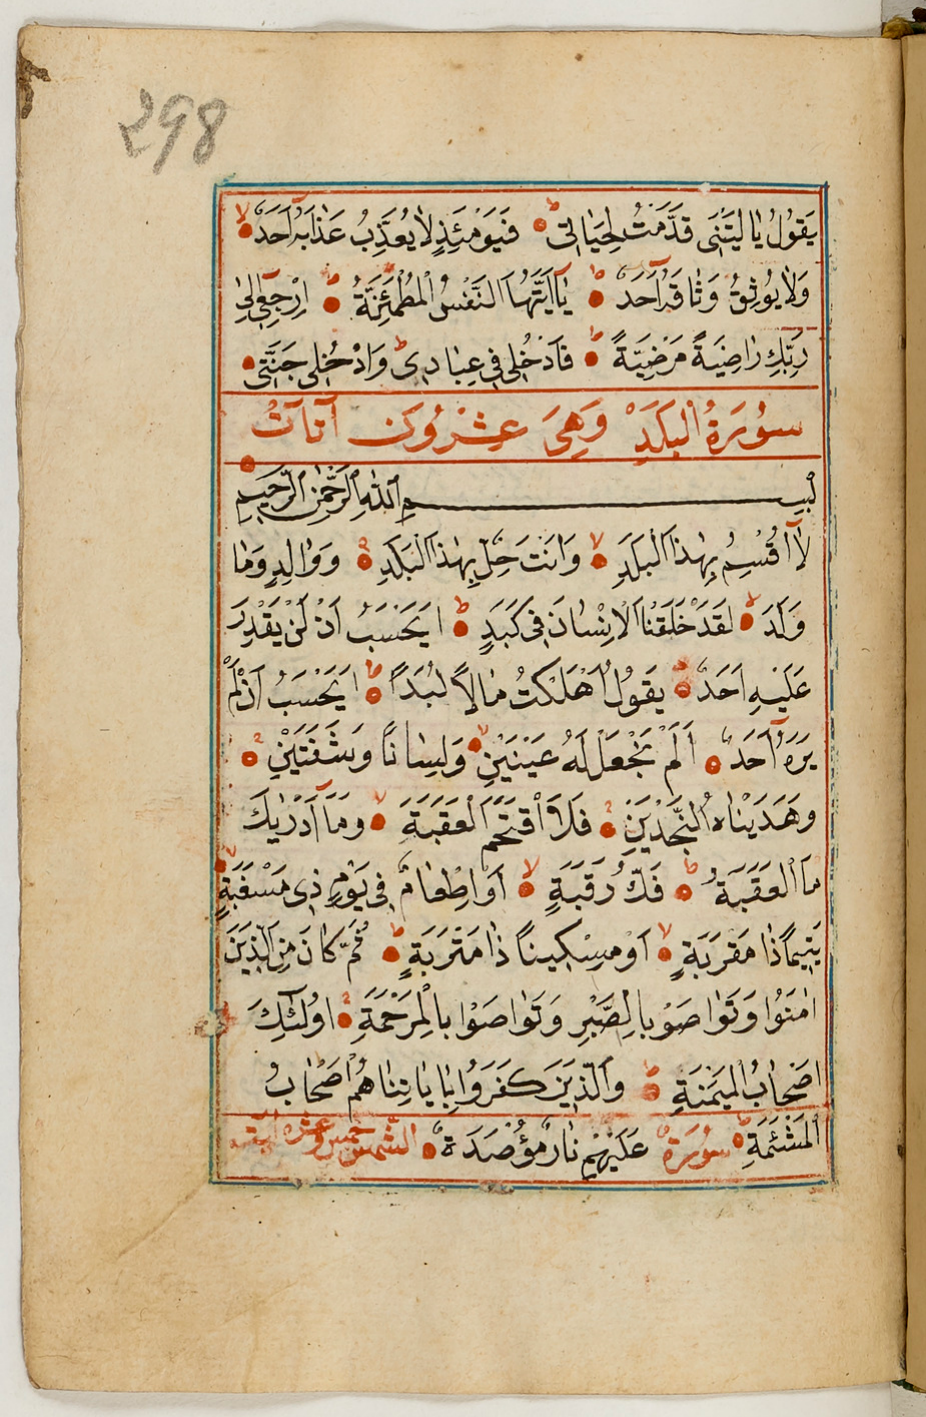 298
يَقُولُ يَا لَيْتَنِى قَدَّمْتُ لِحَيَاتِى فَيَوْمَئِذٍ لَا يُعَذِّبُ عَذَابَهُ اَحَدٌ
وَلَا يُوثِقُ وَثَاقَهُ اَحَدٌ يَا اَيَّتُهَا النَّفْسُ الْمُطْمَئِنَّةُ اِرْجِعِى اِلٰى
رَبِّكِ رَاضِيَةً مَرْضِيَّةً فَادْخُلِى فِى عِبَادِى وَادْخُلِى جَنَّتِى
سُورَةُ الْبَلَدِ وَهِىَ عِشْرُونَ آيَاتٌ
بِسْمِ اللّٰهِ الرَّحْمٰنِ الرَّحِيمِ
لَا اُقْسِمُ بِهٰذَا الْبَلَدِ وَاَنْتَ حِلٌّ بِهٰذَا الْبَلَدِ وَوَالِدٍ وَمَا
وَلَدَ لَقَدْ خَلَقْنَا الْاِنْسَانَ فِى كَبَدٍ اَيَحْسَبُ اَنْ لَنْ يَقْدِرَ
عَلَيْهِ اَحَدٌ يَقُولُ اَهْلَكْتُ مَالًا لُبَدًا اَيَحْسَبُ اَنْ لَمْ
يَرَهُ اَحَدٌ اَلَمْ نَجْعَلْ لَهُ عَيْنَيْنِ وَلِسَانًا وَشَفَتَيْنِ
وَهَدَيْنَاهُ النَّجْدَيْنِ فَلَا اقْتَحَمَ الْعَقَبَةَ وَمَا اَدْرٰيكَ
مَا الْعَقَبَةُ فَكُّ رَقَبَةٍ اَوْ اِطْعَامٌ فِى يَوْمٍ ذِى مَسْغَبَةٍ
يَتِيمًا ذَا مَقْرَبَةٍ اَوْ مِسْكِينًا ذَا مَتْرَبَةٍ ثُمَّ كَانَ مِنَ الَّذِينَ
اٰمَنُوا وَتَوَاصَوْا بِالصَّبْرِ وَتَوَاصَوْا بِالْمَرْحَمَةِ اُولٰئِكَ
اَصْحَابُ الْمَيْمَنَةِ وَالَّذِينَ كَفَرُوا بِاٰيَاتِنَا هُمْ اَصْحَابُ
الْمَشْئَمَةِ سُورَةُ عَلَيْهِمْ نَارٌ مُؤْصَدَةٌ الشَّمْسِ خمس وعشرة آية